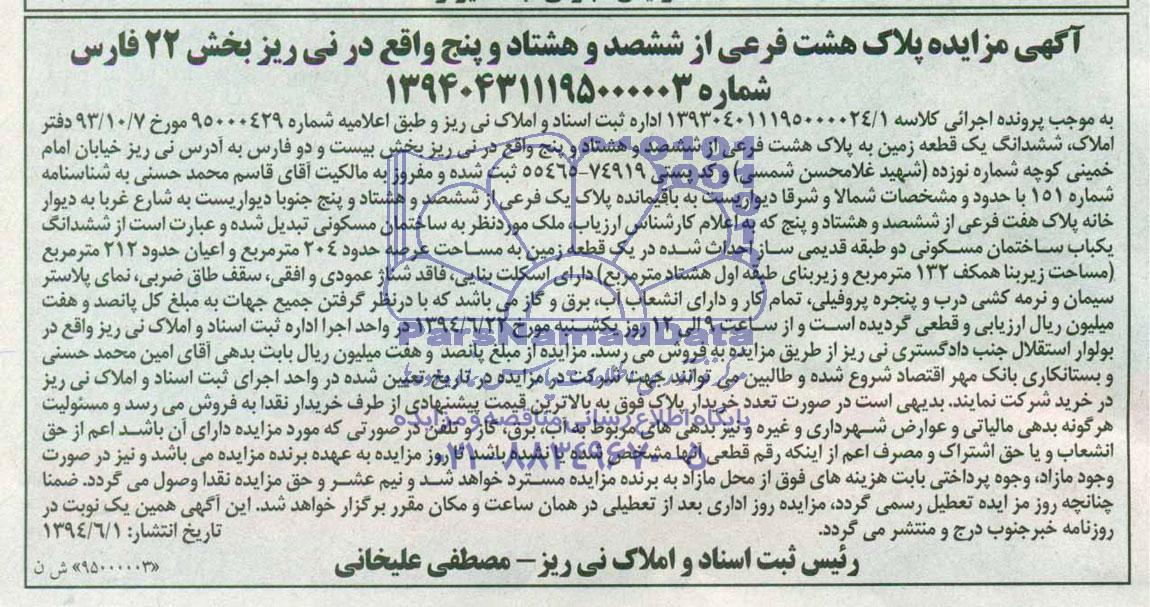 آگهی مزایده پلاک هشت فرعی از ششصد و هشتاد و پنج واقع در نی ریز بخش ۲۲ فارس
شماره ۱۳۹۴۰۴۳۱۱۱۹۵۰۰۰۰۰۳
به موجب پرونده اجرائی کلاسه ۱۳۹۳۰۴۰۱۱۱۹۵۰۰۰۰۲۴/۱ اداره ثبت اسناد و املاک نی ریز و طبق اعلامیه شماره ۹۵۰۰۰۴۲۹ مورخ ۹۳/۱۰/۷ دفتر
املاک، ششدانگ یک قطعه زمین به پلاک هشت فرعی از ششصد و هشتاد و پنج واقع در نی ریز بخش بیست و دو فارس به آدرس نی ریز خیابان امام
خمینی کوچه شماره نوزده (شهید غلامحسن شمسی) و کد پستی ۷۴۹۱۹-۵۵۴۶۵ ثبت شده و مفروز به مالکیت آقای قاسم محمد حسنی به شناسنامه
شماره ۱۵۱ با حدود و مشخصات شمالا و شرقا دیواریست به باقیمانده پلاک یک فرعی از ششصد و هشتاد و پنج جنوبا دیواریست به شارع غربا به دیوار
خانه پلاک هفت فرعی از ششصد و هشتاد و پنج که به اعلام کارشناس ارزیاب، ملک موردنظر به ساختمان مسکونی تبدیل شده و عبارت است از ششدانگ
یکباب ساختمان مسکونی دو طبقه قدیمی ساز احداث شده در یک قطعه زمین به مساحت عرصه حدود ۲۰۴ مترمربع و اعیان حدود ۲۱۲ مترمربع
(مساحت زیربنا همکف ۱۳۲ مترمربع و زیربنای طبقه اول هشتاد مترمربع) دارای اسکلت بنایی، فاقد شناژ عمودی و افقی، سقف طاق ضربی، نمای پلاستر
سیمان و نرمه کشی درب و پنجره پروفیلی، تمام کار و دارای انشعاب آب، برق و گاز می باشد که با درنظر گرفتن جمیع جهات به مبلغ کل پانصد و هفت
میلیون ریال ارزیابی و قطعی گردیده است و از ساعت ۹ الی ۱۲ روز یکشنبه مورخ ۱۳۹۴/۶/۲۲ در واحد اجرا اداره ثبت اسناد و املاک نی ریز واقع در
بولوار استقلال جنب دادگستری نی ریز از طریق مزایده به فروش می رسد. مزایده از مبلغ پانصد و هفت میلیون ریال بابت بدهی آقای امین محمد حسنی
و بستانکاری بانک مهر اقتصاد شروع شده و طالبین می توانند جهت شرکت در مزایده در تاریخ تعیین شده در واحد اجرای ثبت اسناد و املاک نی ریز
در خرید شرکت نمایند، بدیهی است در صورت تعدد خریدار پلاک فوق به بالاترین قیمت پیشنهادی از طرف خریدار نقدا به فروش می رسد و مسئولیت
هرگونه بدهی مالیاتی و عوارض شهرداری و غیره و نیز بدهی های مربوط به آب، برق، گاز و تلفن در صورتی که مورد مزایده دارای آن باشد اعم از حق
انشعاب و یا حق اشتراک و مصرف اعم از اینکه رقم قطعی آنها مشخص شده یا نشده باشد تا روز مزایده به عهده برنده مزایده می باشد و نیز در صورت
وجود مازاد، وجوه پرداختی بابت هزینه های فوق از محل مازاد به برنده مزایده مسترد خواهد شد و نیم عشر و حق مزایده نقدا وصول می گردد. ضمنا
چنانچه روز مزایده تعطیل رسمی گردد، مزایده روز اداری بعد از تعطیلی در همان ساعت و مکان مقرر برگزار خواهد شد. این آگهی همین یک نوبت در
روزنامه خبرجنوب درج و منتشر می گردد. تاریخ انتشار: ۱۳۹۴/۶/۱
رئیس ثبت اسناد و املاک نی ریز – مصطفی علیخانی
«۹۵۰۰۰۰۰۳» ش ن
ParsNamadData
پایگاه اطلاع رسانی مناقصه و مزایده
۰۲۱-۸۸۳۴۹۶۷۰-۵